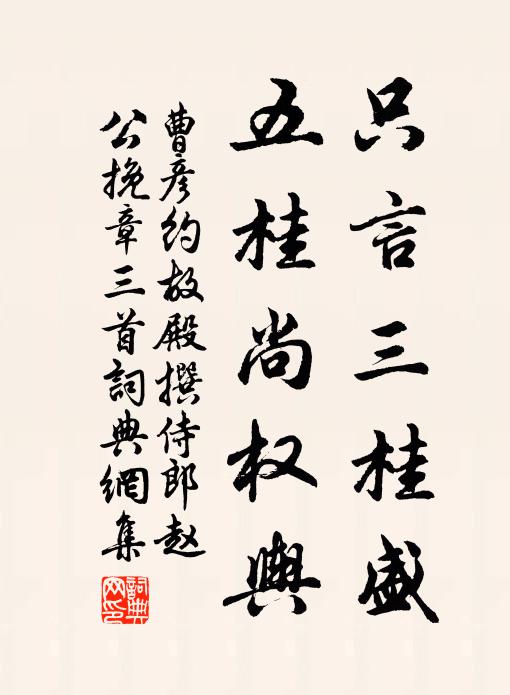 只言三桂盛
五桂尚权舆
曹彦约故殿撰侍郎赵
公挽章三首詞典網集
詞典网印